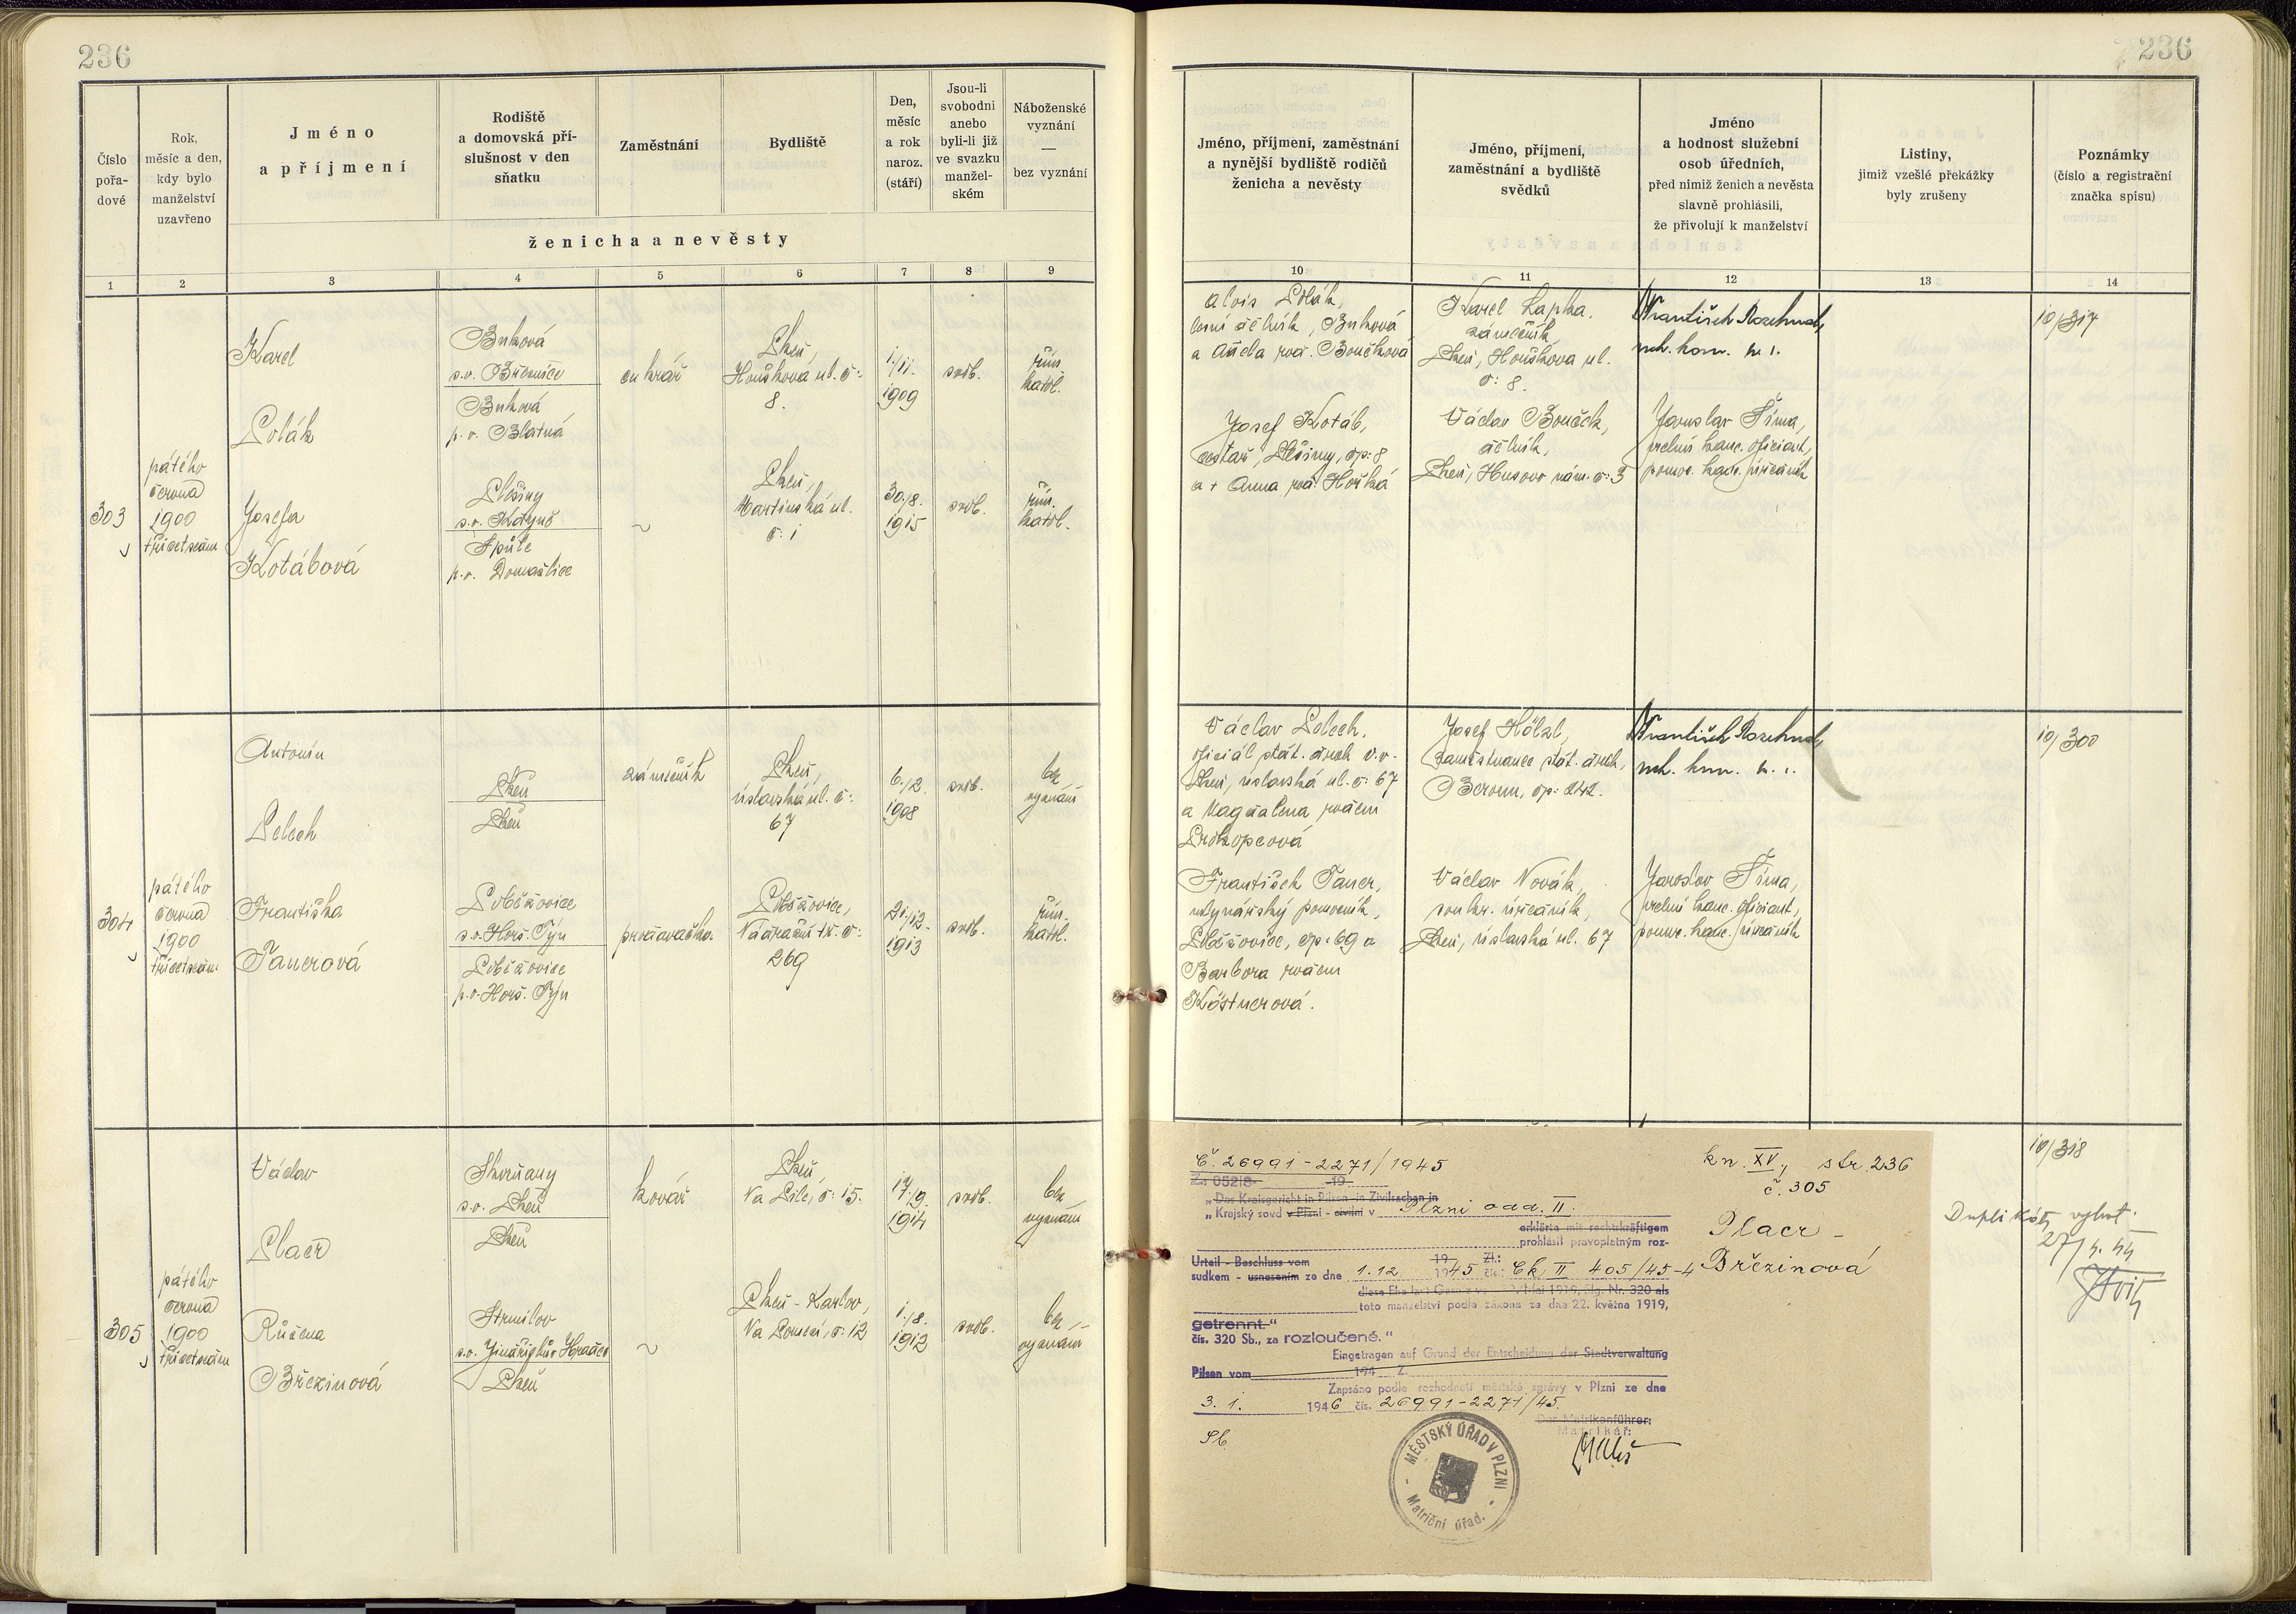 236
Číslo pořa-dové
Rok, měsíc a den, kdy bylo manželství uzavřeno
Jméno a příjmení
Rodiště a domovská pří-slušnost v den sňatku
Zaměstnání
Bydliště
Den, měsíc a rok naroz. (stáří)
Jsou-li svobodni anebo byli-li již ve svazku manžel-ském
Náboženské vyznání — bez vyznání
ženicha a nevěsty
1 2 3 4 5 6 7 8 9
303
pátého
června
1900
třicetsedm
Karel
Polák
Buková
s.o. Březnice
Buková
p.o. Blatná
cukrář
Plzeň,
Houškova ul. č:
8.
1/11.
1909
svob.
řím.
katol.
Josefa
Kotábová
Běšiny
s.o. Kdyně
Spůle
p.o. Domažlice
~
Plzeň,
Martinská ul.
č: 1
30./8.
1915
svob.
řím.
katol.
304
pátého
června
1900
třicetsedm
Antonín
Pelech
Plzeň
Plzeň
zámečník
Plzeň,
úslavská ul. č:
67
6./2.
1908
svob.
bez
vyznání
Františka
Tauerová
Poběžovice
s.o. Horš. Týn
Poběžovice
p.o. Horš. Týn
prodavačka
Poběžovice,
Nádražní tř. č:
269
21./12.
1913
svob.
řím.
katol.
305
pátého
června
1900
třicetsedm
Václav
Placr
Skvrňany
s.o. Plzeň
Plzeň
kovář
Plzeň
Na Pile, č: 15.
17./9.
1914
svob.
bez
vyznání
Růžena
Březinová
Strmilov
s.o. Jindřichův Hradec
Plzeň
~
Plzeň - Karlov,
č: 12
1./8.
1912
svob.
bez
vyznání
236
Jméno, příjmení, zaměstnání a nynější bydliště rodičů ženicha a nevěsty
Jméno, příjmení, zaměstnání a bydliště svědků
Jméno a hodnost služební osob úředních, před nimiž ženich a nevěsta slavně prohlásili, že přivolují k manželství
Listiny, jimiž vzešlé překážky byly zrušeny
Poznámky (číslo a registrační značka spisu)
10 11 12 13 14
Alois Polák,
lesní dělník, Buková
a Adéla roz. Boučková
Karel Kapka,
zámečník
Plzeň, Houškova ul.
č: 8.
František Rozehnal,
rada kom. m. r.
10/317
Josef Kotáb,
cestář, Běšiny, čp: 8
a + Anna roz. Horká
Václav Bouček,
dělník,
Plzeň, Husovo nám. č: 3
Jaroslav Šíma,
vrchní kanc. oficiant,
pomoc. kanc. úředník
Václav Pelech,
oficiál stát. drah v.v.
Plzeň, úslavská ul. č: 67
a Magdalena rozen
Prokopcová
Josef Hölzl,
zaměstnanec stát. drah,
Beroun, čp: 242.
František Rozehnal,
10/300
František Tauer,
mlynářský pomocník,
Poběžovice, čp: 69 a
Barbora rozen
Köstnerová.
Václav Novák,
soukr. úředník,
Plzeň, úslavská ul. 67
Jaroslav Šíma,
vrchní kanc. oficiant,
pomoc. kanc. úředník
10/318
Č. 26991-2271/1945
kn. XV., str. 236
č. 305
Z.: 05218 19
„Das Kreisgericht in Pilsen in Zivilsachen in
„Krajský soud v Plzni - civilní v Plzni odd. II.
erklärte mit rechtskräftigem
prohlásil pravoplatným roz-
Placr -
Březinová
Urteil - Beschluss vom 19 Zl.:
sudkem - usnesením ze dne 1.12 1945 č.: Ck II 405/45-4
diese Ehe laut Gesetz vom 22. Mai 1919, Slg. Nr. 320 als
toto manželství podle zákona ze dne 22. května 1919,
getrennt."
čís. 320 Sb., za rozloučené."
Eingetragen auf Grund der Entscheidung der Stadtverwaltung
Pilsen vom 194 Z.
Zapsáno podle rozhodnutí městské správy v Plzni ze dne
3. 1. 1946 čís. 26991-2271/45.
Der Matrikenführer:
Matrikář:
MĚSTSKÝ ÚŘAD V PLZNI
Matriční úřad.
Duplikát vyhot.
27/4. 44